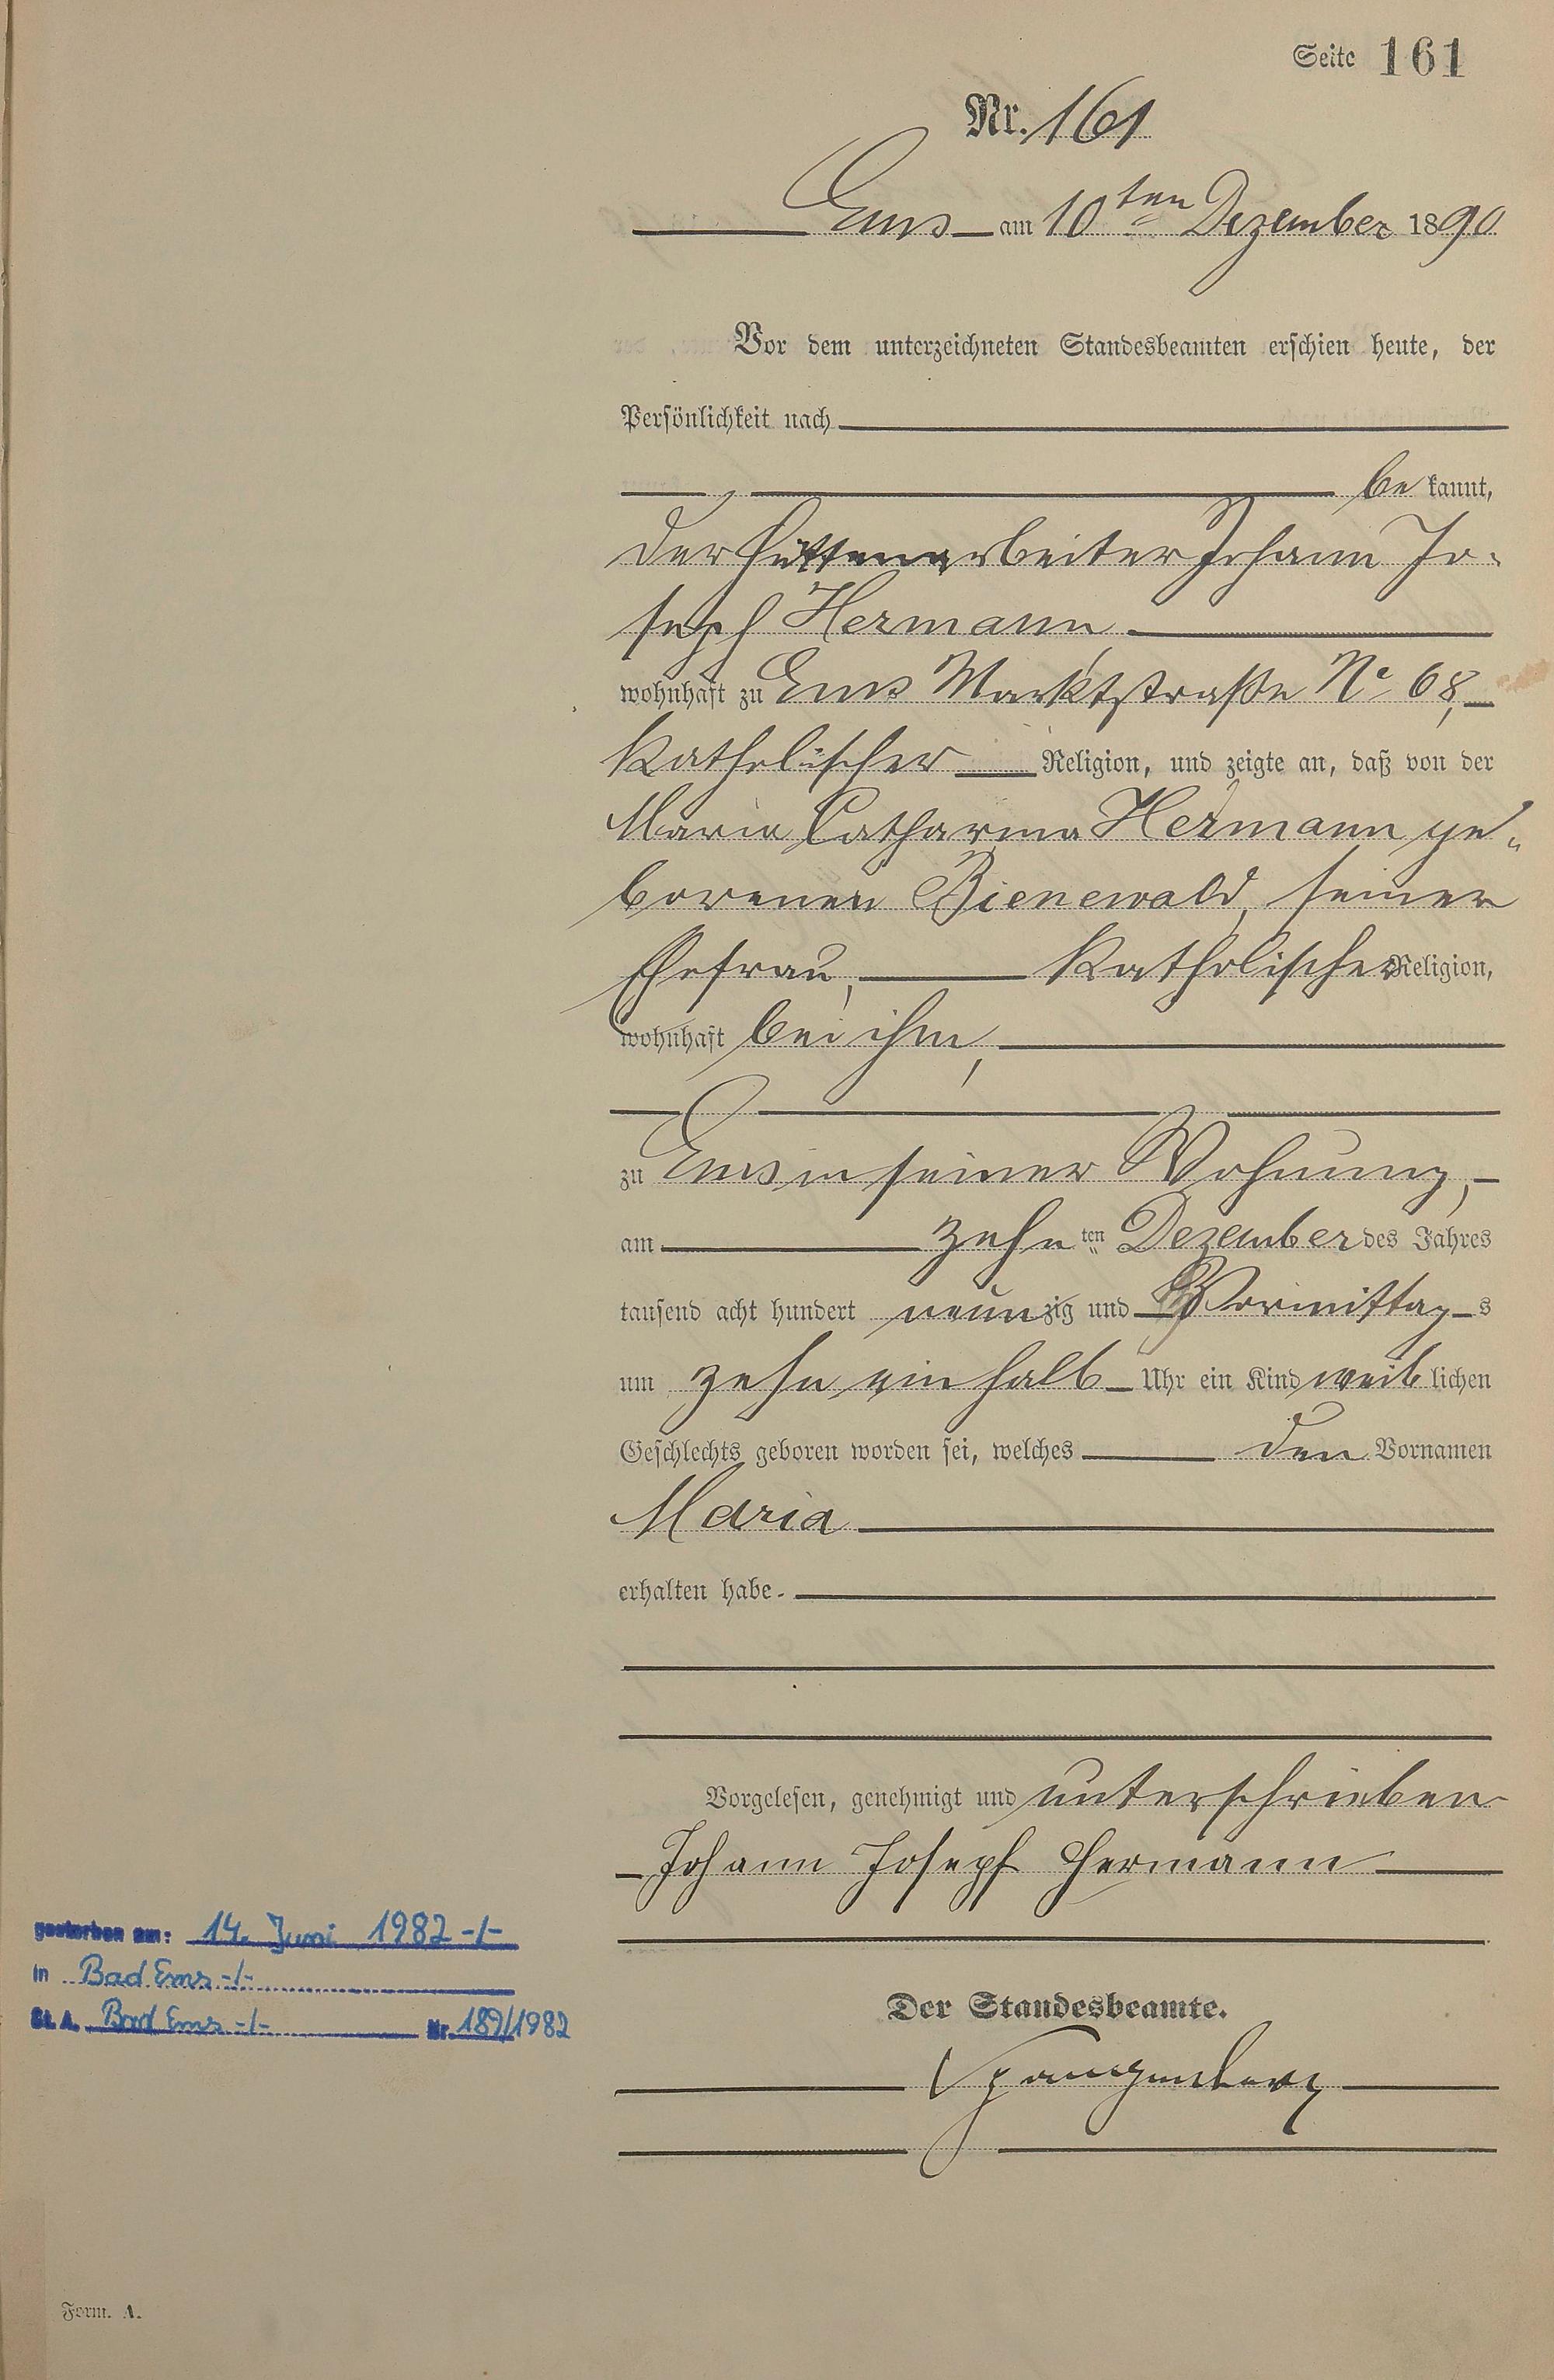 Seite 161
Nr. 161
Ems am 10ten Dezember 1890
Vor dem unterzeichneten Standesbeamten erschien heute, der
Persönlichkeit nach
be kannt,
der Hüttenarbeiter Johann Jo-
seph Hermann,
wohnhaft zu Ems Marktstraße No 68,
katholischer Religion, und zeigte an, daß von der
Maria Catharina Hermann ge-
borenen Bienewald, seiner
Ehefrau, katholischer Religion,
wohnhaft bei ihm,
zu Ems in seiner Wohnung,
am zehn ten Dezember des Jahres
tausend acht hundert neunzig und Vormittag s
um zehn ein halb Uhr ein Kind weib lichen
Geschlechts geboren worden sei, welches den Vornamen
Maria
erhalten habe.
Vorgelesen, genehmigt und unterschrieben
Johann Joseph Hermann
Der Standesbeamte.
Spangenberg
gestorben am: 14. Juni 1982 -/-
in Bad Ems -/-
St. A. Bad Ems -/- Nr. 189/1982
Form. A.